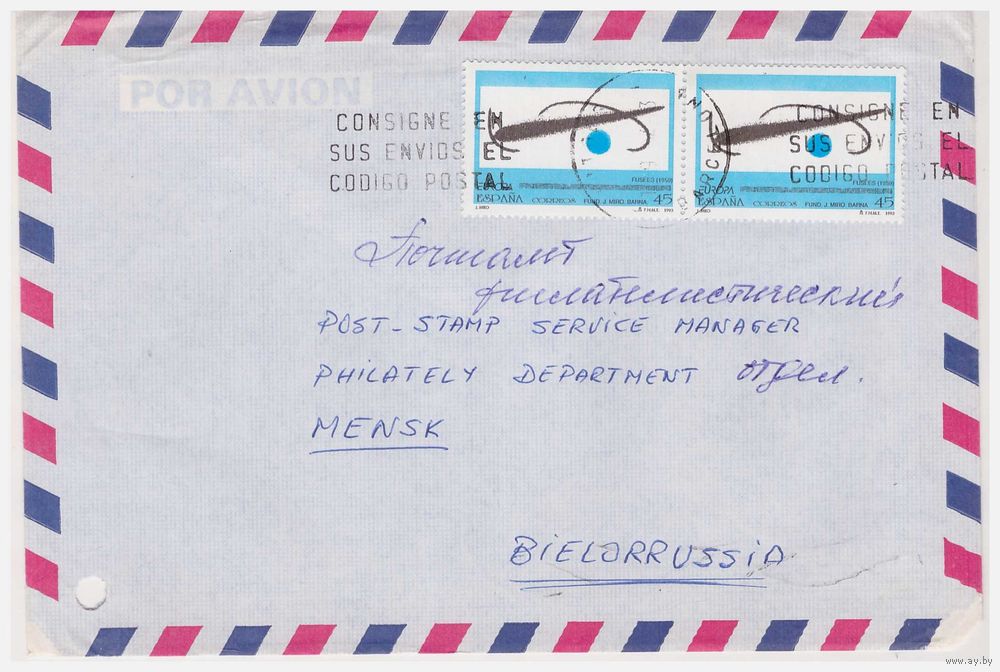 POR AVION
CONSIGNE EN
SUS ENVIOS EL
CODIGO POSTAL
CONSIGNE EN
SUS ENVIOS EL
CODIGO POSTAL
FUSÉES (1959)
EUROPA
ESPAÑA CORREOS FUND. J. MIRO. BARNA 45
J. MIRO F.N.M.T. 1993
FUSÉES (1959)
EUROPA
ESPAÑA CORREOS FUND. J. MIRO. BARNA 45
J. MIRO F.N.M.T. 1993
Почтамт
филателистический
POST-STAMP SERVICE MANAGER
PHILATELY DEPARTMENT отдел.
MENSK
BIELORRUSSIA
www.ay.by